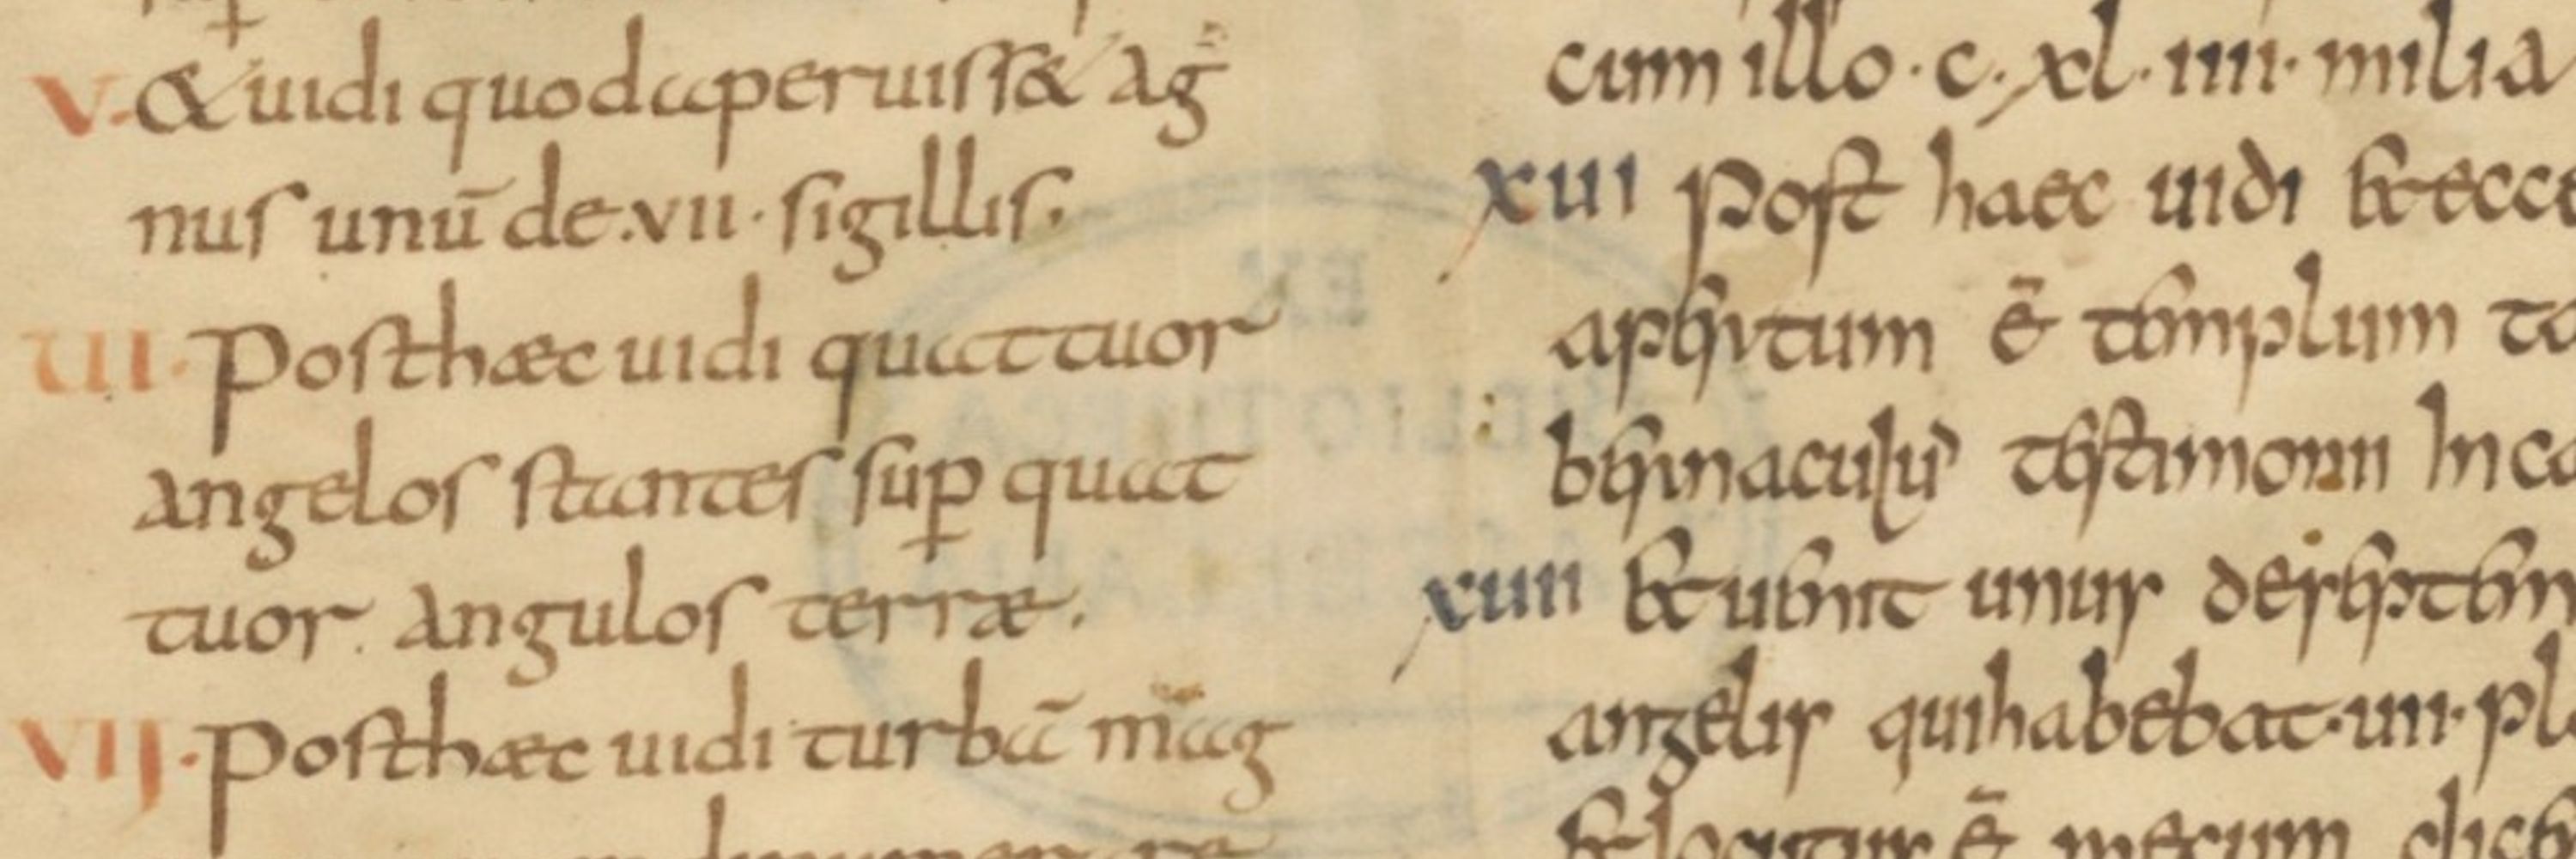 V. & uidi quod aperuiss& ag
nus unū de .vii. sigillis.
UI. Post haec uidi quattuor
angelos stantes sup quat
tuor angulos terrae.
VIJ. Post haec uidi turbā mag
cum illo . c . xl . iiii . milia
XUI Post haec uidi et ecce
apertum ē templum ta
bernaculu testimonii In
XUII et uenit unus de septem
angelis qui habebat . uii .
et locutus ē mecum